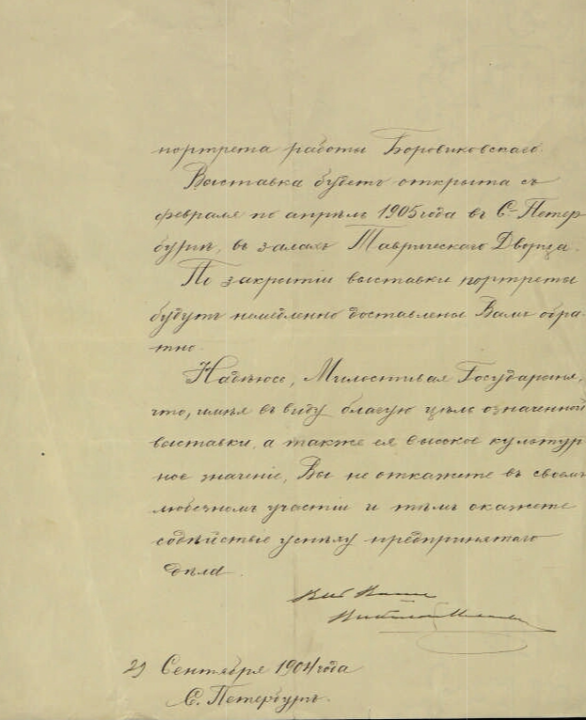 портрета работы Боровиковскаго.
Выставка будетъ открыта съ
февраля по апрѣль 1905 года въ С. Петер
бургѣ, въ залахъ Таврическаго Дворца.
По закрытіи выставки портреты
будутъ немедленно доставлены Вамъ обра-
тно.
Надѣюсь, Милостивая Государыня,
что, имѣя въ виду благую цѣль означенной
выставки, а также ея высокое культур
ное значеніе, Вы не откажете въ своемъ
любезномъ участіи и тѣмъ окажете
содѣйствіе успѣху предпринятаго
дѣла.
29 Сентября 1904 года
С. Петербургъ.